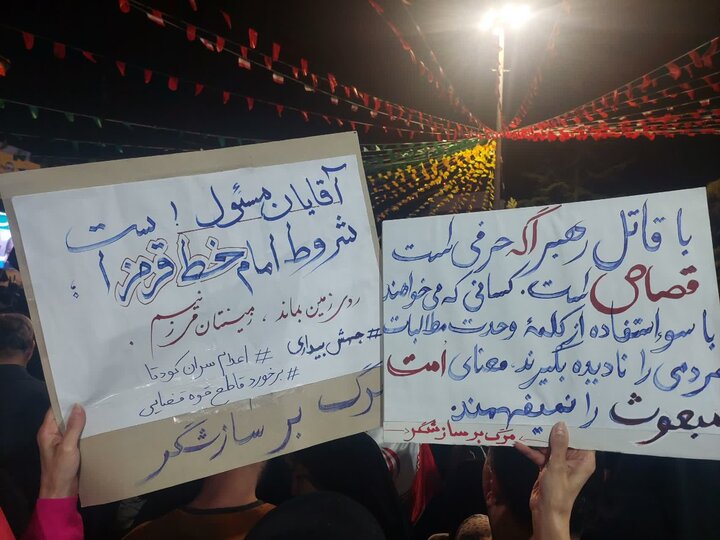 آقایان مسئول !
شروط امام خط قرمز است
روی زمین بماند ،
#جنبش بیداری
#اعدام سران کودتا
#برخورد قاطع قوه قضایی
مرگ بر سازشگر
با قاتل رهبر اگه حرفی است
قصاص است. کسانی که می‌خواهند
با سوءاستفاده از کلمهٔ وحدت مطالبات
مردمی را نادیده بگیرند، معنای امت
مبعوث را نمیفهمند.
مرگ بر سازشگر